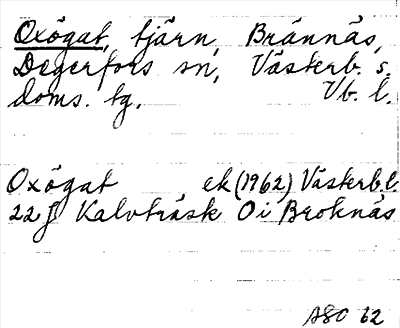 Oxögat, tjärn, Brännäs,
Degerfors sn, Västerb. s.
doms. tg. Vb. l.
Oxögat ek (1962) Västerb. l.
22J Kalvträsk Oi Broknäs
ASC 62